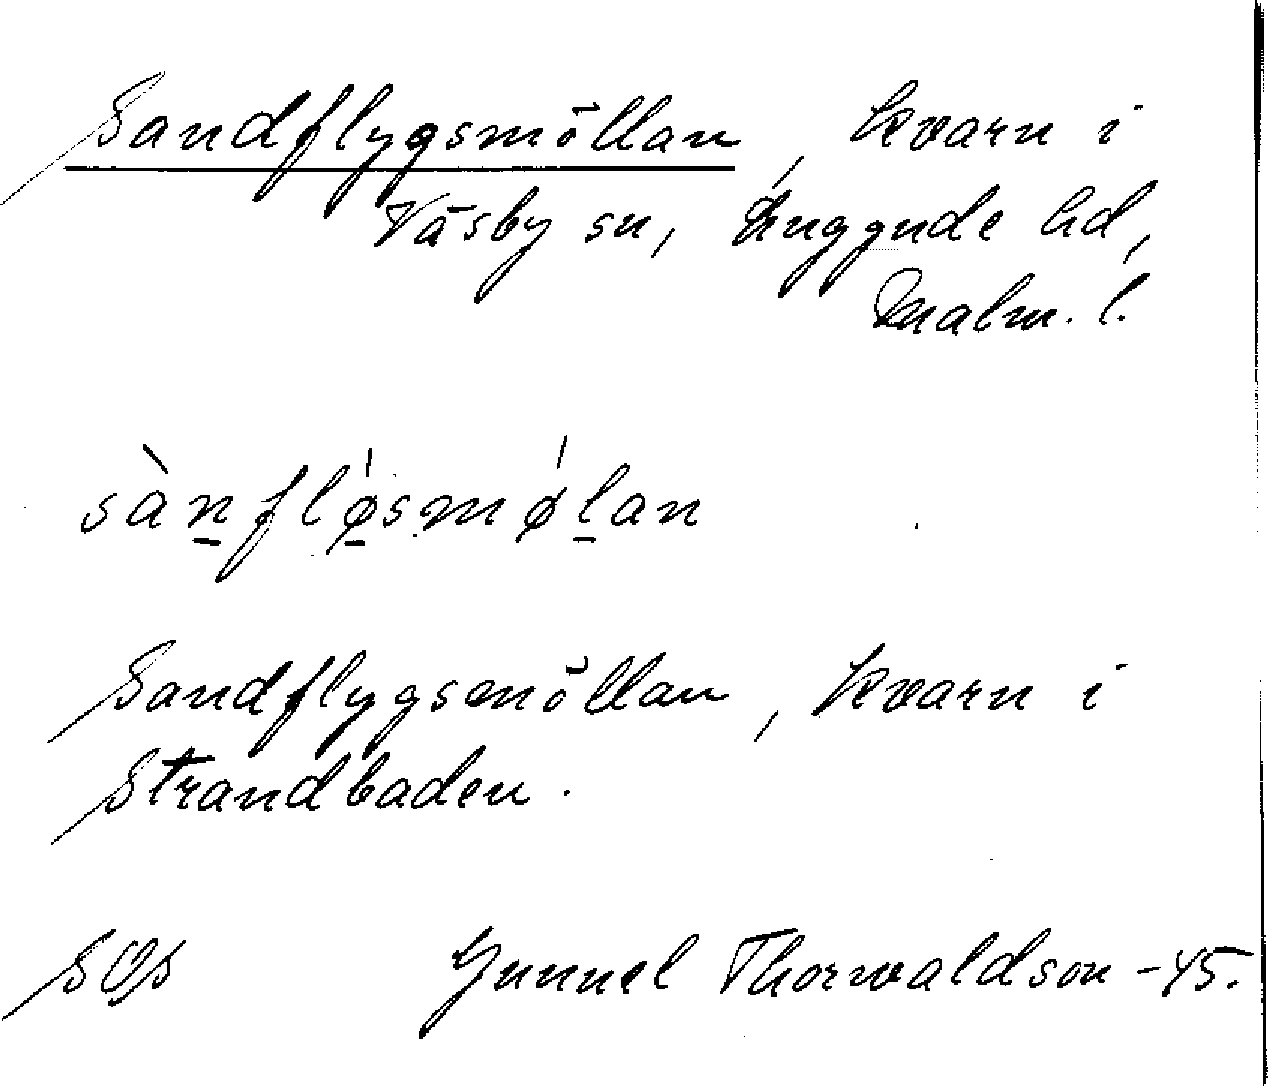 Sandflygsmöllan, kvarn i
Väsby sn, Luggude hd,
Malm. l.
sànfløsmølan
Sandflygsmöllan, kvarn i
Strandbaden.
Gunnel Thorwaldson -45.